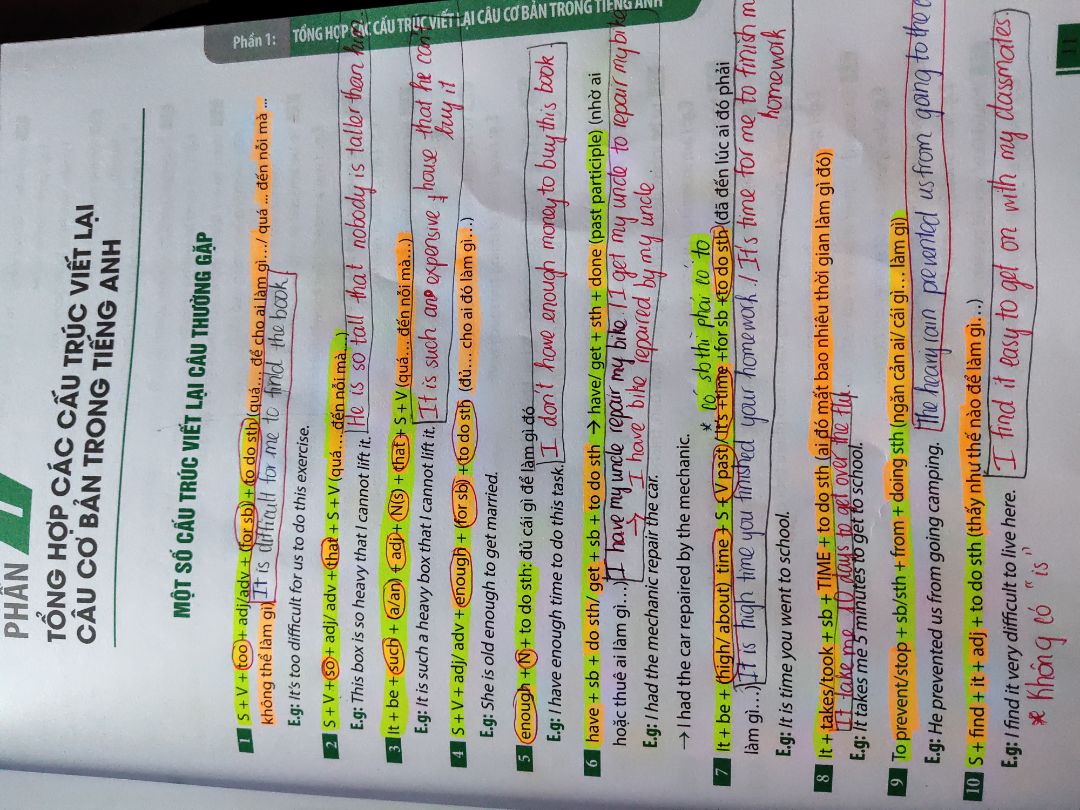 Phần 1: TỔNG HỢP CÁC CẤU TRÚC VIẾT LẠI CÂU CƠ BẢN TRONG TIẾNG ANH
PHẦN 1
TỔNG HỢP CÁC CẤU TRÚC VIẾT LẠI
CÂU CƠ BẢN TRONG TIẾNG ANH
MỘT SỐ CẤU TRÚC VIẾT LẠI CÂU THƯỜNG GẶP
1 S + V + too + adj/adv + (for sb) + to do sth (quá... để cho ai làm gì.../ quá ... đến nỗi mà ...
không thể làm gì) It is difficult for me to find the book
E.g: It's too difficult for us to do this exercise.
2 S + V + so + adj/ adv + that + S + V (quá... đến nỗi mà...)
E.g: This box is so heavy that I cannot lift it. He is so tall that nobody is taller than him.
3 It + be + such + (a/an) + adj + N(s) + that + S + V (quá... đến nỗi mà...)
E.g: It is such a heavy box that I cannot lift it. It is such an expensive house that he can't
buy it
4 S + V + adj/ adv + enough + (for sb) + to do sth (đủ... cho ai đó làm gì...)
E.g: She is old enough to get married.
5 enough + N + to do sth: đủ cái gì để làm gì đó
E.g: I have enough time to do this task. I don't have enough money to buy this book.
6 have + sb + do sth/ get + sb + to do sth → have/ get + sth + done (past participle) (nhờ ai
hoặc thuê ai làm gì...) I have my uncle repair my bike. / I get my uncle to repair my bike
→ I have bike repaired by my uncle.
E.g: I had the mechanic repair the car.
→ I had the car repaired by the mechanic.
* có sb thì phải có to
7 It + be + (high/ about) time + S + V past/ it's + time + for sb + to do sth (đã đến lúc ai đó phải
làm gì...) It is high time you finished your homework. / It's time for me to finish m
homework
E.g: It is time you went to school.
8 It + takes/took + sb + TIME + to do sth (ai đó mất bao nhiêu thời gian làm gì đó)
It take me 10 days to get over the flu.
E.g: It takes me 5 minutes to get to school.
9 To prevent/stop + sb/sth + from + doing sth (ngăn cản ai/ cái gì... làm gì)
E.g: He prevented us from going camping. The heavy rain prevented us from going to the c
10 S + find + it + adj + to do sth (thấy như thế nào để làm gì...)
E.g: I find it very difficult to live here. I find it easy to get on with my classmates
* không có "is"
11